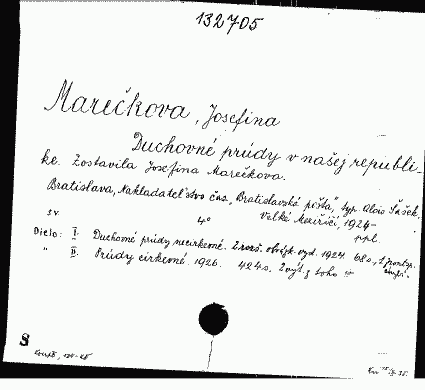 132705
Marečkova, Josefina
Duchovné prúdy v našej republi-
ke. Zostavila Josefina Marečkova.
Bratislava, Nakladateľstvo čas. „Bratislavská pošta," typ. Alois Šašek,
Velké Meziříčí, 1924-
sv. 4°
ppl.
Dielo: I. Duchovné prúdy necirkevné. 2. rozš. vyd. 1924. 68 s., 1 frontisp.
" II. Prúdy cirkevné 1926. 424 s. 2 výt. z toho
S